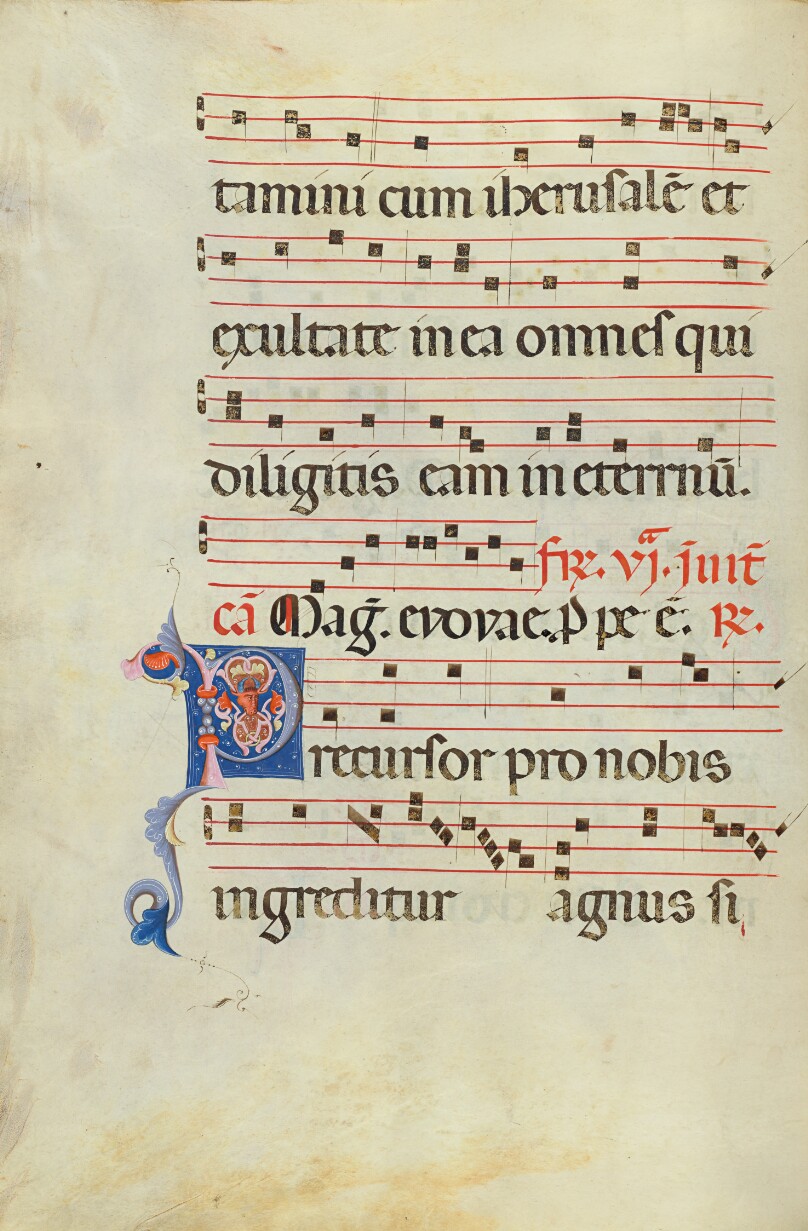 tamini cum iherusalē et
exultate in ea omnes qui
diligitis eam in eternū.
fr̄. vj. ī uit̄
cā Maḡ. evovae. p̱ pe ē. R̄.
Precursor pro nobis
ingreditur agnus si